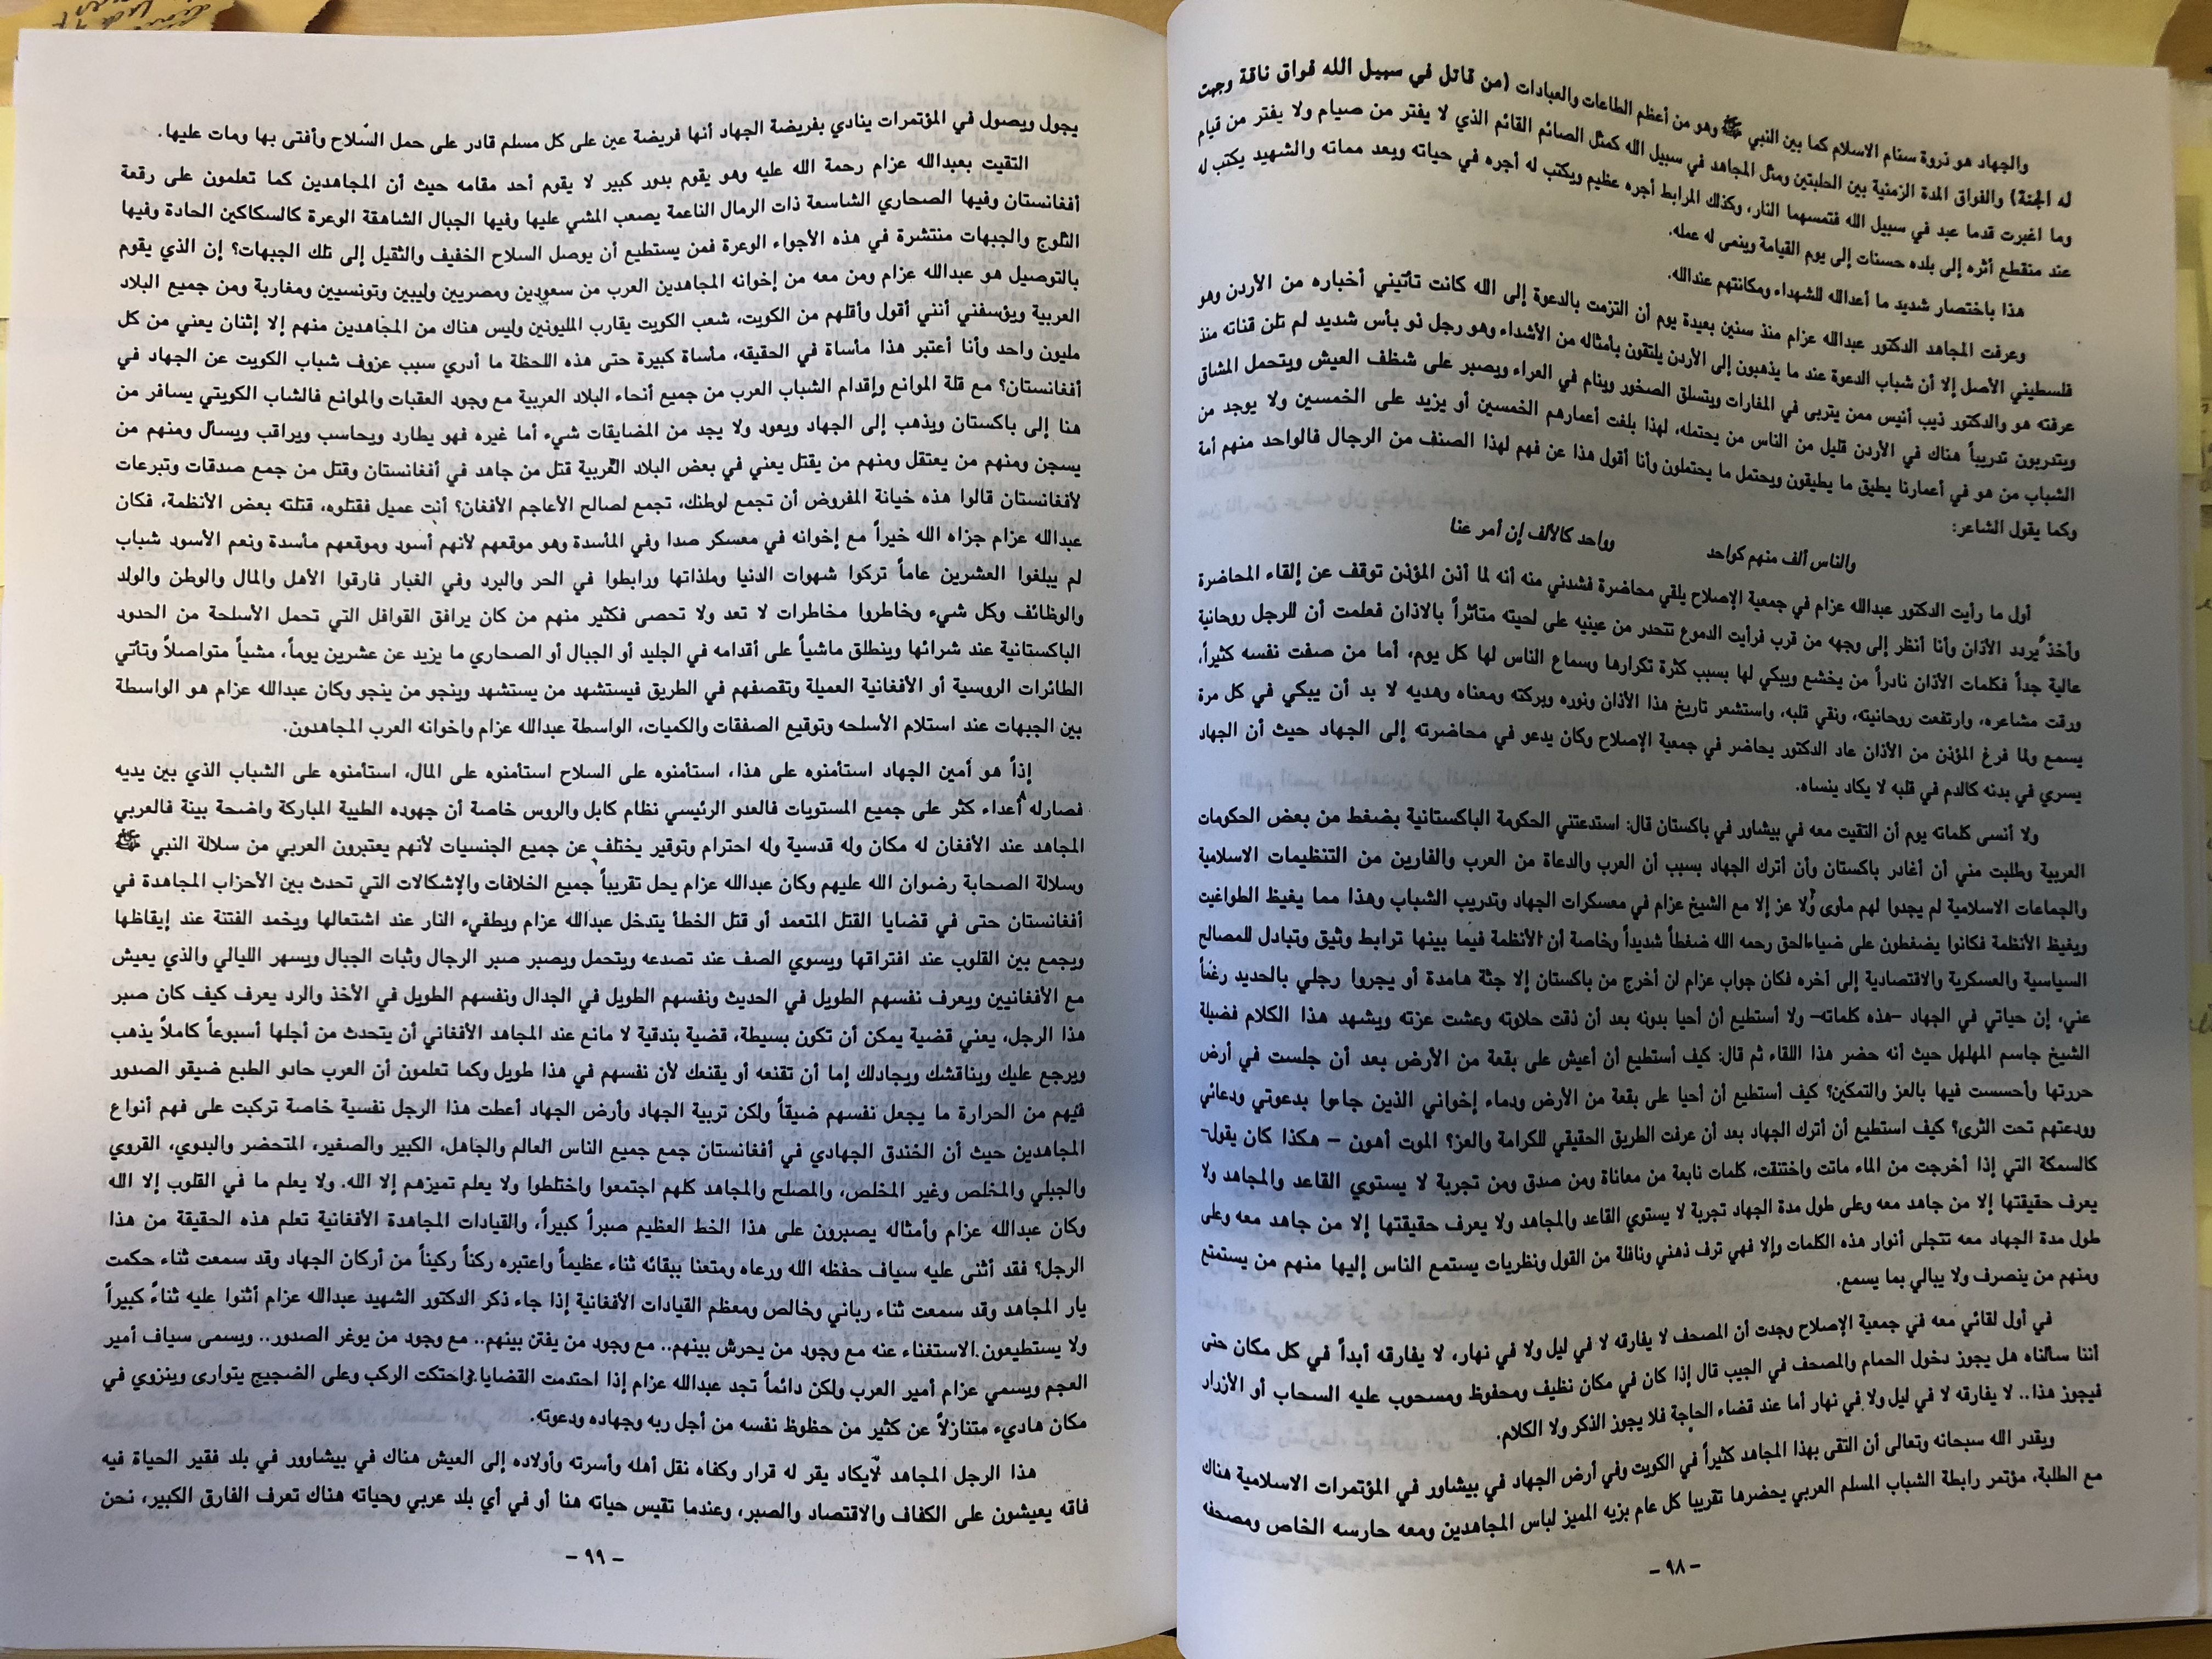 والجهاد هو ذروة سنام الاسلام كما بين النبي ﷺ وهو من أعظم الطاعات والعبادات (من قاتل في سبيل الله فواق ناقة وجبت
له الجنة) والفواق المدة الزمنية بين الحلبتين ومثل المجاهد في سبيل الله كمثل الصائم القائم الذي لا يفتر من صيام ولا يفتر من قيام
وما اغبرت قدما عبد في سبيل الله فتمسهما النار، وكذلك المرابط أجره عظيم ويكتب له أجره في حياته وبعد مماته والشهيد يكتب له
عند منقطع أثره إلى بلده حسنات إلى يوم القيامة وينمى له عمله.
هذا باختصار شديد ما أعدالله للشهداء ومكانتهم عندالله.
وعرفت المجاهد الدكتور عبدالله عزام منذ سنين بعيدة يوم أن التزمت بالدعوة إلى الله كانت تأتيني أخباره من الأردن وهو
فلسطيني الأصل إلا أن شباب الدعوة عند ما يذهبون إلى الأردن يلتقون بأمثاله من الأشداء وهو رجل نو بأس شديد لم تلن قناته منذ
عرفته هو والدكتور ذيب أنيس ممن يتربى في المغارات ويتسلق الصخور وينام في العراء ويصبر على شظف العيش ويتحمل المشاق
ويتدربون تدريباً هناك في الأردن قليل من الناس من يحتمله، لهذا بلغت أعمارهم الخمسين أو يزيد على الخمسين ولا يوجد من
الشباب من هو في أعمارنا يطيق ما يطيقون ويحتمل ما يحتملون وأنا أقول هذا عن فهم لهذا الصنف من الرجال فالواحد منهم أمة
وكما يقول الشاعر:
والناس ألف منهم كواحد وواحد كالألف إن أمر عنا
أول ما رأيت الدكتور عبدالله عزام في جمعية الإصلاح يلقي محاضرة فشدني منه أنه لما أذن المؤذن توقف عن إلقاء المحاضرة
وأخذ يردد الأذان وأنا أنظر إلى وجهه من قرب فرأيت الدموع تتحدر من عينيه على لحيته متأثراً بالاذان فعلمت أن للرجل روحانية
عالية جداً فكلمات الأذان نادراً من يخشع ويبكي لها بسبب كثرة تكرارها وسماع الناس لها كل يوم، أما من صفت نفسه كثيراً،
ورقت مشاعره، وارتفعت روحانيته، ونقي قلبه، واستشعر تاريخ هذا الأذان ونوره وبركته ومعناه وهديه لا بد أن يبكي في كل مرة
يسمع ولما فرغ المؤذن من الأذان عاد الدكتور يحاضر في جمعية الإصلاح وكان يدعو في محاضرته إلى الجهاد حيث أن الجهاد
يسري في بدنه كالدم في قلبه لا يكاد ينساه.
ولا أنسى كلماته يوم أن التقيت معه في بيشاور في باكستان قال: استدعتني الحكومة الباكستانية بضغط من بعض الحكومات
العربية وطلبت مني أن أغادر باكستان وأن أترك الجهاد بسبب أن العرب والدعاة من العرب والفارين من التنظيمات الاسلامية
والجماعات الاسلامية لم يجدوا لهم مأوى ولا عز إلا مع الشيخ عزام في معسكرات الجهاد وتدريب الشباب وهذا مما يغيظ الطواغيت
ويغيظ الأنظمة فكانوا يضغطون على ضياءالحق رحمه الله ضغطاً شديداً وخاصة أن الأنظمة فيما بينها ترابط وثيق وتبادل للمصالح
السياسية والعسكرية والاقتصادية إلى آخره فكان جواب عزام لن أخرج من باكستان إلا جثة هامدة أو يجروا رجلي بالحديد رغماً
عني، إن حياتي في الجهاد –هذه كلماته– ولا أستطيع أن أحيا بدونه بعد أن ذقت حلاوته وعشت عزته ويشهد هذا الكلام فضيلة
الشيخ جاسم المهلهل حيث أنه حضر هذا اللقاء ثم قال: كيف أستطيع أن أعيش على بقعة من الأرض بعد أن جلست في أرض
حررتها وأحسست فيها بالعز والتمكين؟ كيف أستطيع أن أحيا على بقعة من الأرض ودماء إخواني الذين جاءوا بدعوتي ودعائي
وودعتهم تحت الثرى؟ كيف استطيع أن أترك الجهاد بعد أن عرفت الطريق الحقيقي للكرامة والعز؟ الموت أهون – هكذا كان يقول–
كالسمكة التي إذا أخرجت من الماء ماتت واختنقت، كلمات نابعة من معاناة ومن صدق ومن تجربة لا يستوي القاعد والمجاهد ولا
يعرف حقيقتها إلا من جاهد معه وعلى طول مدة الجهاد تجربة لا يستوي القاعد والمجاهد ولا يعرف حقيقتها إلا من جاهد معه وعلى
طول مدة الجهاد معه تتجلى أنوار هذه الكلمات وإلا فهي ترف ذهني ونافلة من القول ونظريات يستمع الناس إليها منهم من يستمتع
ومنهم من ينصرف ولا يبالي بما يسمع.
في أول لقائي معه في جمعية الإصلاح وجدت أن المصحف لا يفارقه لا في ليل ولا في نهار، لا يفارقه أبداً في كل مكان حتى
أننا سألناه هل يجوز دخول الحمام والمصحف في الجيب قال إذا كان في مكان نظيف ومحفوظ ومسحوب عليه السحاب أو الأزرار
فيجوز هذا.. لا يفارقه لا في ليل ولا في نهار أما عند قضاء الحاجة فلا يجوز الذكر ولا الكلام.
ويقدر الله سبحانه وتعالى أن التقى بهذا المجاهد كثيراً في الكويت وفي أرض الجهاد في بيشاور في المؤتمرات الاسلامية هناك
مع الطلبة، مؤتمر رابطة الشباب المسلم العربي يحضرها تقريبا كل عام بزيه المميز لباس المجاهدين ومعه حارسه الخاص ومصحفه
– ٩٨ –
يجول ويصول في المؤتمرات ينادي بفريضة الجهاد أنها فريضة عين على كل مسلم قادر على حمل السّلاح وأفتى بها ومات عليها.
التقيت بعبدالله عزام رحمة الله عليه وهو يقوم بدور كبير لا يقوم أحد مقامه حيث أن المجاهدين كما تعلمون على رقعة
أفغانستان وفيها الصحاري الشاسعة ذات الرمال الناعمة يصعب المشي عليها وفيها الجبال الشاهقة الوعرة كالسكاكين الحادة وفيها
الثلوج والجبهات منتشرة في هذه الأجواء الوعرة فمن يستطيع أن يوصل السلاح الخفيف والثقيل إلى تلك الجبهات؟ إن الذي يقوم
بالتوصيل هو عبدالله عزام ومن معه من إخوانه المجاهدين العرب من سعودين ومصريين وليبين وتونسيين ومغاربة ومن جميع البلاد
العربية ويؤسفني أنني أقول وأقلهم من الكويت، شعب الكويت يقارب المليونين وليس هناك من المجاهدين منهم إلا إثنان يعني من كل
مليون واحد وأنا أعتبر هذا مأساة في الحقيقه، مأساة كبيرة حتى هذه اللحظة ما أدري سبب عزوف شباب الكويت عن الجهاد في
أفغانستان؟ مع قلة الموانع وإقدام الشباب العرب من جميع أنحاء البلاد العربية مع وجود العقبات والموانع فالشاب الكويتي يسافر من
هنا إلى باكستان ويذهب إلى الجهاد ويعود ولا يجد من المضايقات شيء أما غيره فهو يطارد ويحاسب ويراقب ويسأل ومنهم من
يسجن ومنهم من يعتقل ومنهم من يقتل يعني في بعض البلاد العربية قتل من جاهد في أفغانستان وقتل من جمع صدقات وتبرعات
لأفغانستان قالوا هذه خيانة المفروض أن تجمع لوطنك، تجمع لصالح الأعاجم الأفغان؟ أنت عميل فقتلوه، قتلته بعض الأنظمة، فكان
عبدالله عزام جزاه الله خيراً مع إخوانه في معسكر صدا وفي المأسدة وهو موقعهم لأنهم أسود وموقعهم مأسدة ونعم الأسود شباب
لم يبلغوا العشرين عاماً تركوا شهوات الدنيا وملذاتها ورابطوا في الحر والبرد وفي الغبار فارقوا الأهل والمال والوطن والولد
والوظائف وكل شيء وخاطروا مخاطرات لا تعد ولا تحصى فكثير منهم من كان يرافق القوافل التي تحمل الأسلحة من الحدود
الباكستانية عند شرائها وينطلق ماشياً على أقدامه في الجليد أو الجبال أو الصحاري ما يزيد عن عشرين يوماً، مشياً متواصلاً وتأتي
الطائرات الروسية أو الأفغانية العميلة وتقصفهم في الطريق فيستشهد من يستشهد وينجو من ينجو وكان عبدالله عزام هو الواسطة
بين الجبهات عند استلام الأسلحه وتوقيع الصفقات والكميات، الواسطة عبدالله عزام واخوانه العرب المجاهدون.
إذاً هو أمين الجهاد استأمنوه على هذا، استأمنوه على السلاح استأمنوه على المال، استأمنوه على الشباب الذي بين يديه
فصارله أعداء كثر على جميع المستويات فالعدو الرئيسي نظام كابل والروس خاصة أن جهوده الطيبة المباركة واضحة بينة فالعربي
المجاهد عند الأفغان له مكان وله قدسية وله احترام وتوقير يختلف عن جميع الجنسيات لأنهم يعتبرون العربي من سلالة النبي ﷺ
وسلالة الصحابة رضوان الله عليهم وكان عبدالله عزام يحل تقريباً جميع الخلافات والإشكالات التي تحدث بين الأحزاب المجاهدة في
أفغانستان حتى في قضايا القتل المتعمد أو قتل الخطأ يتدخل عبدالله عزام ويطفيء النار عند اشتعالها ويخمد الفتنة عند إيقاظها
ويجمع بين القلوب عند افتراقها ويسوي الصف عند تصدعه ويتحمل ويصبر صبر الرجال وثبات الجبال ويسهر الليالي والذي يعيش
مع الأفغانيين ويعرف نفسهم الطويل في الحديث ونفسهم الطويل في الجدال ونفسهم الطويل في الأخذ والرد يعرف كيف كان صبر
هذا الرجل، يعني قضية يمكن أن تكون بسيطة، قضية بندقية لا مانع عند المجاهد الأفغاني أن يتحدث من أجلها أسبوعاً كاملاً يذهب
ويرجع عليك ويناقشك ويجادلك إما أن تقنعه أو يقنعك لأن نفسهم في هذا طويل وكما تعلمون أن العرب حادو الطبع ضيقو الصدور
فيهم من الحرارة ما يجعل نفسهم ضيقاً ولكن تربية الجهاد وأرض الجهاد أعطت هذا الرجل نفسية خاصة تركبت على فهم أنواع
المجاهدين حيث أن الخندق الجهادي في أفغانستان جمع جميع الناس العالم والجاهل، الكبير والصغير، المتحضر والبدوي، القروي
والجبلي والمخلص وغير المخلص، والمصلح والمجاهد كلهم اجتمعوا واختلطوا ولا يعلم تميزهم إلا الله. ولا يعلم ما في القلوب إلا الله
وكان عبدالله عزام وأمثاله يصبرون على هذا الخط العظيم صبراً كبيراً، والقيادات المجاهدة الأفغانية تعلم هذه الحقيقة من هذا
الرجل؟ فقد أثنى عليه سياف حفظه الله ورعاه ومتعنا ببقائه ثناء عظيماً واعتبره ركناً ركيناً من أركان الجهاد وقد سمعت ثناء حكمت
يار المجاهد وقد سمعت ثناء رباني وخالص ومعظم القيادات الأفغانية إذا جاء ذكر الدكتور الشهيد عبدالله عزام أثنوا عليه ثناءً كبيراً
ولا يستطيعون الاستغناء عنه مع وجود من يحرش بينهم.. مع وجود من يفتن بينهم.. مع وجود من يوغر الصدور.. ويسمى سياف أمير
العجم ويسمي عزام أمير العرب ولكن دائماً تجد عبدالله عزام إذا احتدمت القضايا واحتكت الركب وعلى الضجيج يتوارى وينزوي في
مكان هاديء متنازلاً عن كثير من حظوظ نفسه من أجل ربه وجهاده ودعوته.
هذا الرجل المجاهد لايكاد يقر له قرار وكفاه نقل أهله وأسرته وأولاده إلى العيش هناك في بيشاوور في بلد فقير الحياة فيه
فاقه يعيشون على الكفاف والاقتصاد والصبر، وعندما تقيس حياته هنا أو في أي بلد عربي وحياته هناك تعرف الفارق الكبير، نحن
– ٩٩ –